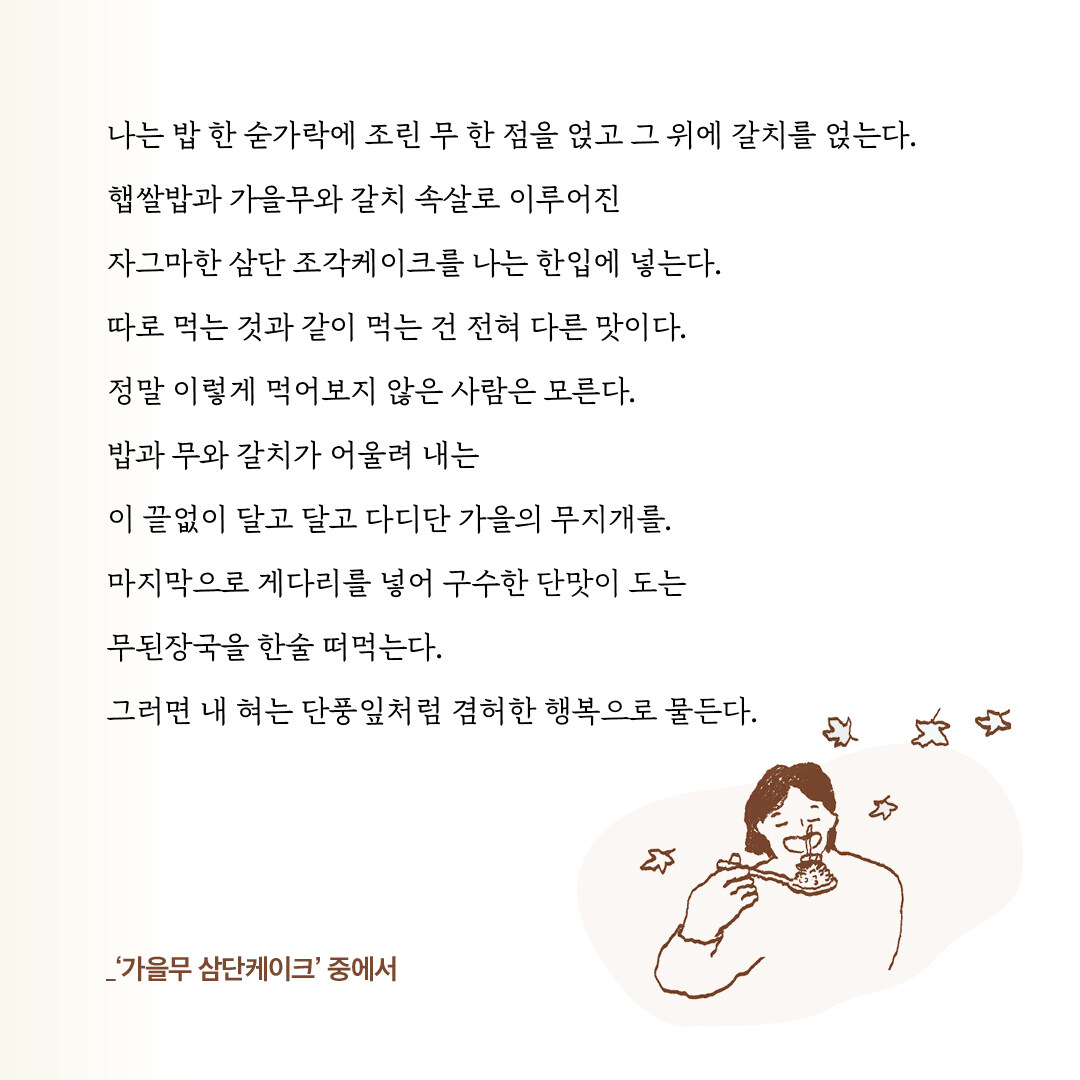 나는 밥 한 숟가락에 조린 무 한 점을 얹고 그 위에 갈치를 얹는다.
햅쌀밥과 가을무와 갈치 속살로 이루어진
자그마한 삼단 조각케이크를 나는 한입에 넣는다.
따로 먹는 것과 같이 먹는 건 전혀 다른 맛이다.
정말 이렇게 먹어보지 않은 사람은 모른다.
밥과 무와 갈치가 어울려 내는
이 끝없이 달고 달고 다디단 가을의 무지개를.
마지막으로 게다리를 넣어 구수한 단맛이 도는
무된장국을 한술 떠먹는다.
그러면 내 혀는 단풍잎처럼 겸허한 행복으로 물든다.
_‘가을무 삼단케이크’ 중에서